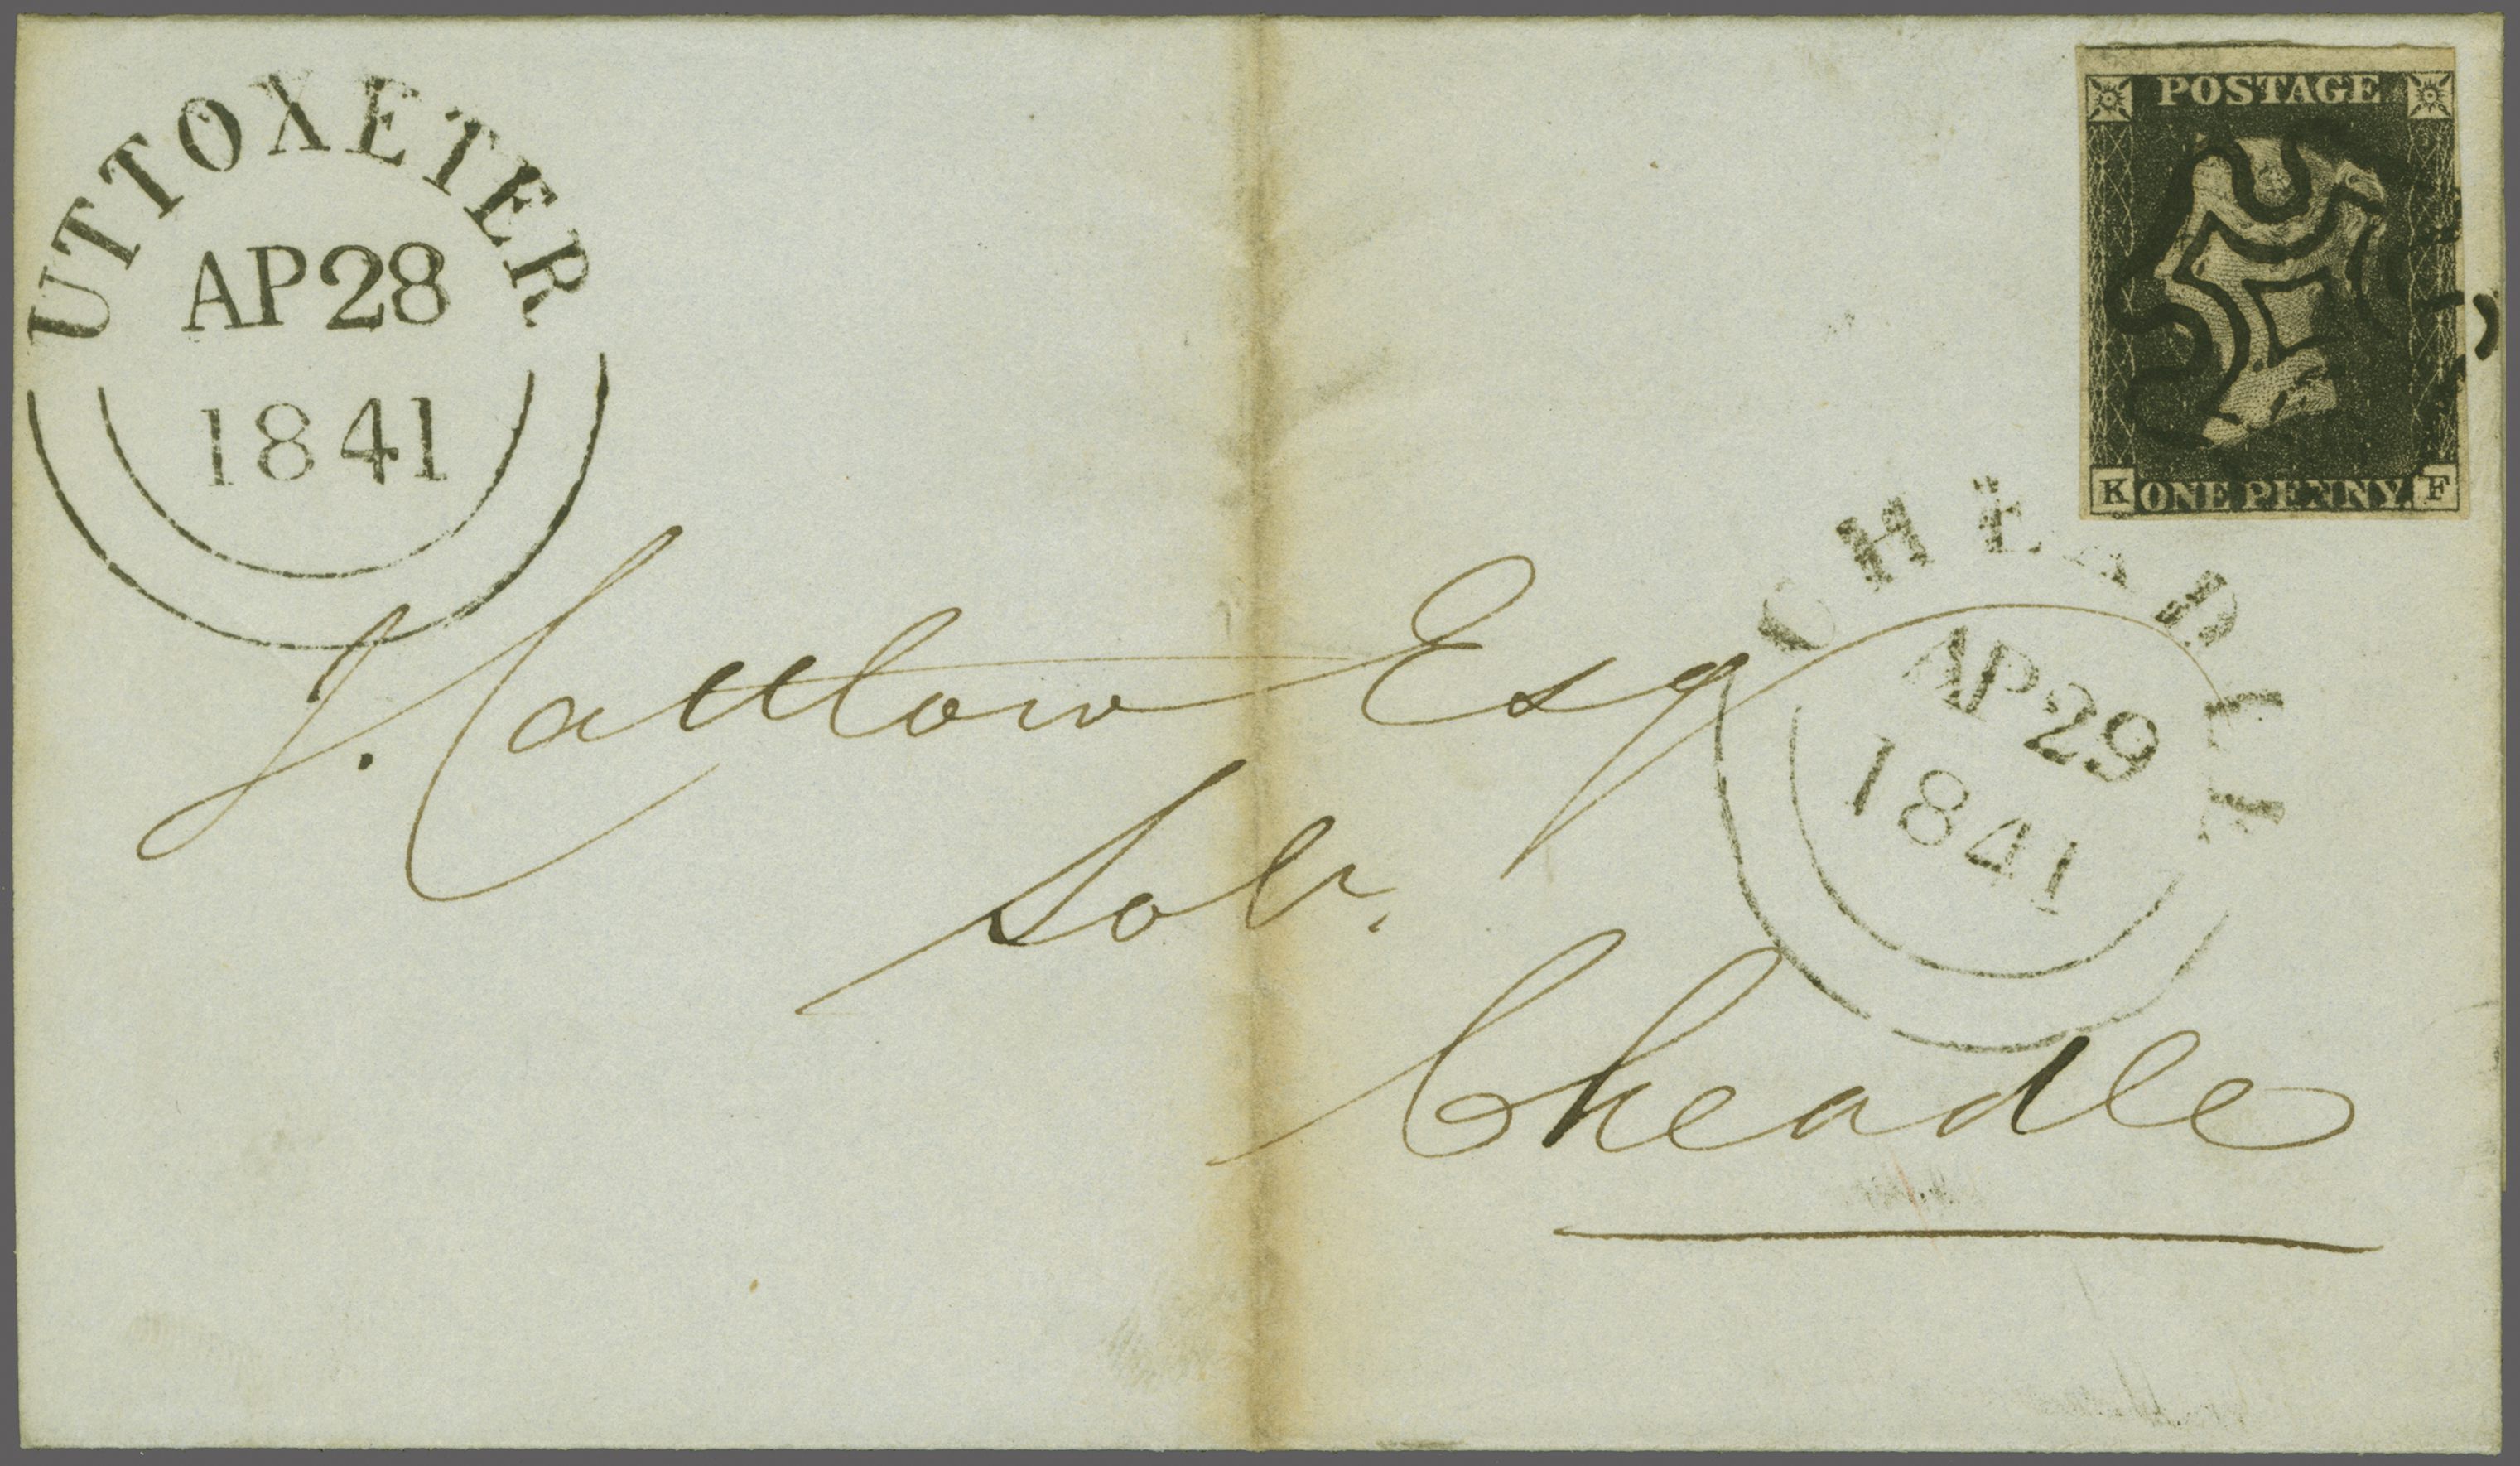 UTTOXETER
AP28
1841
POSTAGE
K ONE PENNY. F
CHEADLE
AP29
1841
J. Esq
Solr.
Cheadle